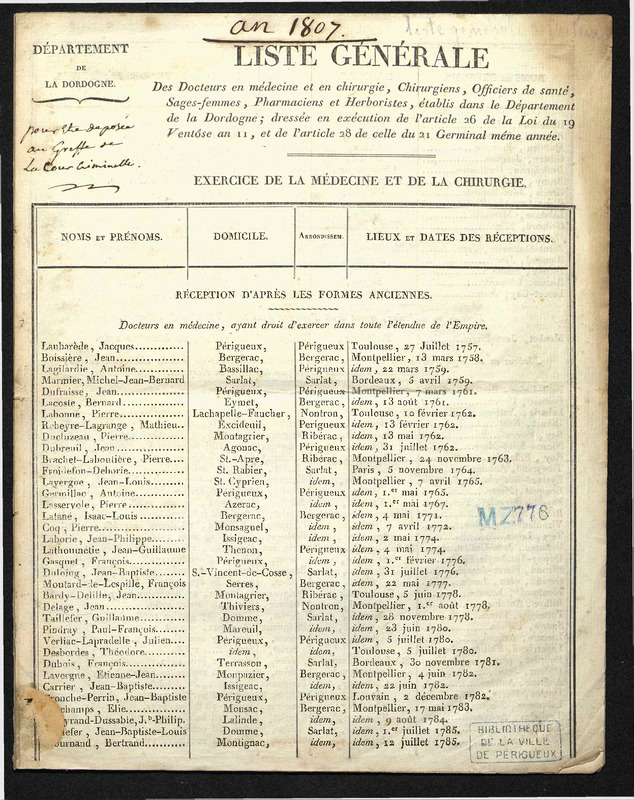 an 1807.
DÉPARTEMENT
DE
LA DORDOGNE.
pour être déposée
au Greffe de
la Cour Criminelle.
LISTE GÉNÉRALE
Des Docteurs en médecine et en chirurgie, Chirurgiens, Officiers de santé,
Sages-femmes, Pharmaciens et Herboristes, établis dans le Département
de la Dordogne; dressée en exécution de l'article 26 de la Loi du 19
Ventôse an 11, et de l'article 28 de celle du 21 Germinal même année.
EXERCICE DE LA MÉDECINE ET DE LA CHIRURGIE.
NOMS ET PRÉNOMS. DOMICILE. ARRONDISSEM. LIEUX ET DATES DES RÉCEPTIONS.
RÉCEPTION D'APRÈS LES FORMES ANCIENNES.
Docteurs en médecine, ayant droit d'exercer dans toute l'étendue de l'Empire.
Laubarède, Jacques............. Périgueux, Périgueux Toulouse, 27 Juillet 1757.
Boissière, Jean................ Bergerac, Bergerac, Montpellier, 13 mars 1758.
Lagilardie, Antoine............ Bassillac, Périgueux idem, 22 mars 1759.
Marmier, Michel-Jean-Bernard Sarlat, Sarlat, Bordeaux, 5 avril 1759.
Dufraisse, Jean................ Périgueux, Périgueux Montpellier, 7 mars 1761.
Lacoste, Bernard............... Eymet, Bergerac, idem, 13 août 1761.
Labonne, Pierre................ Lachapelle-Faucher, Nontron, Toulouse, 10 février 1762.
Rebeyre-Lagrange, Mathieu.. Excideuil, Périgueux idem, 13 février 1762.
Ducluzeau, Pierre.............. Montagrier, Ribérac, idem, 13 mai 1762.
Dubreuil, Jean................. Agonac, Périgueux idem, 31 juillet 1762.
Brachet-Laboulière, Pierre.... St.-Apre, Ribérac, Montpellier, 24 novembre 1763.
Froidefon-Deborie.............. St. Rabier, Sarlat, Paris, 5 novembre 1764.
Lavergne, Jean-Louis........... St. Cyprien, idem, Montpellier, 7 avril 1765.
Germillac, Antoine............. Périgueux, Périgueux idem, 1.er mai 1765.
Lasservole, Pierre............. Azerac, idem, idem, 1.er mai 1767.
Latané, Isaac-Louis............ Bergerac, Bergerac, idem, 4 mai 1771.
Coq, Pierre.................... Monsaguel, idem, idem, 7 avril 1772.
Laborie, Jean-Philippe......... Issigeac, idem, idem, 2 mai 1774.
Lathonnétie, Jean-Guillaume Thenon, Périgueux idem, 4 mai 1774.
Gasquet, François.............. Périgueux, idem, idem, 1.er février 1776.
Jean-Baptiste.......... S.-Vincent-de-Cosse, Sarlat, idem, 31 juillet 1776.
Moutard-de-Lespille, François Serres, Bergerac, idem, 22 mai 1777.
Bardy-Delille, Jean............ Montagrier, Ribérac, Toulouse, 5 juin 1778.
Delage, Jean................... Thiviers, Nontron, Montpellier, 1.er août 1778.
Taillefer, Guillaume........... Domme, Sarlat, idem, 28 novembre 1778.
Pindray, Paul-François......... Mareuil, idem, idem, 23 juin 1780.
Verliac-Lapradelle, Julien..... Périgueux, Périgueux idem, 5 juillet 1780.
Desbordes, Théodore............ idem, idem, Toulouse, 5 juillet 1780.
Dubois, François............... Terrasson, Sarlat, Bordeaux, 30 novembre 1781.
Lavergne, Etienne-Jean......... Monpazier, Bergerac, Montpellier, 4 juin 1782.
Carrier, Jean-Baptiste......... Issigeac, idem, idem, 22 juin 1782.
Jean-Baptiste Périgueux, Périgueux Louvain, 2 décembre 1782.
champs, Elie................ Monsac, Bergerac, Montpellier, 17 mai 1783.
yrand-Dussable, J.b-Philip. Lalinde, idem, idem, 9 août 1784.
efer, Jean-Baptiste-Louis Domme, Sarlat, idem, 1.er juillet 1785.
ournand, Bertrand............. Montignac, idem, idem, 12 juillet 1785.
MZ776
BIBLIOTHÈQUE
DE LA VILLE
DE PÉRIGUEUX